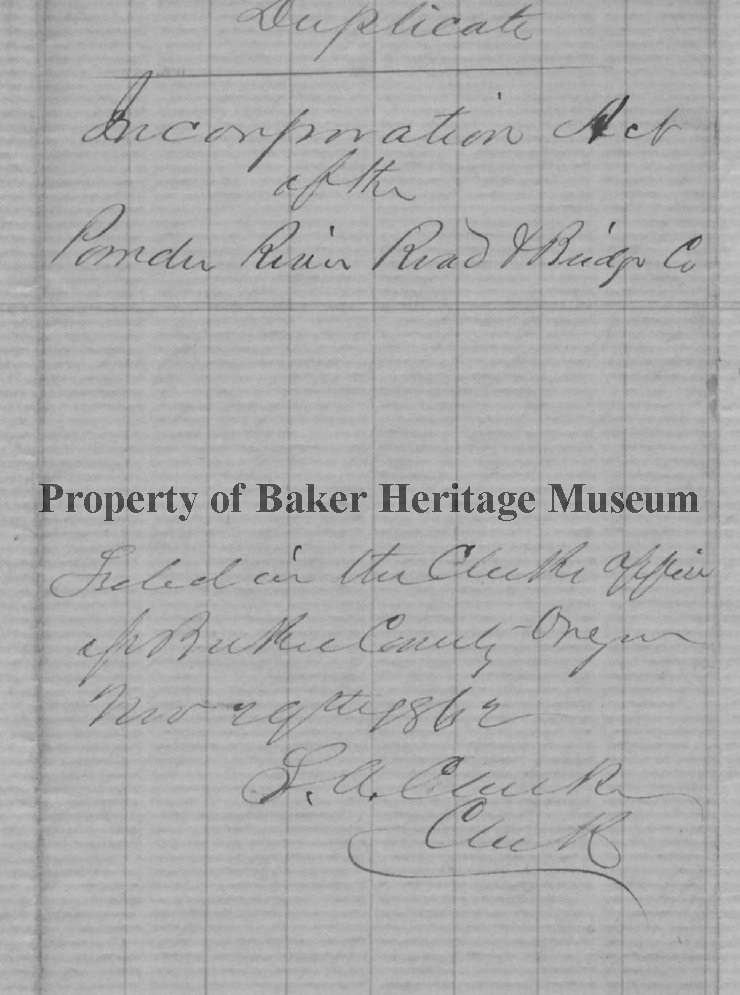 Duplicate
Incorporation Act
of the
Powder River Road & Bridge Co
Property of Baker Heritage Museum
Filed in the Clerks office
of Baker County Oregon
Nov 29th 1862
S. A. Clarke
Clerk